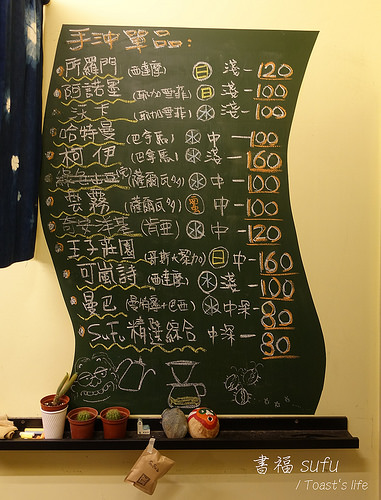 手沖單品:
所羅門 (西達摩) 日 淺-120
阿諾墨 (耶加雪菲) 水 淺-100
沃卡 (耶加雪菲) 水 淺-100
哈特曼 (巴拿馬) 水 中-100
柯伊 (巴拿馬) 水 淺-160
(薩爾瓦多) 水 中-100
雲霧 (薩爾瓦多) 蜜 中-100
(肯亞) 水 中-120
王子莊園 (哥斯大黎加) 日 中-160
可嵐詩 (西達摩) 水 淺-100
曼巴 (曼特寧+巴西) 水 中深-80
SuFu 精選綜合 中深-80
書福 sufu
/ Toast's life